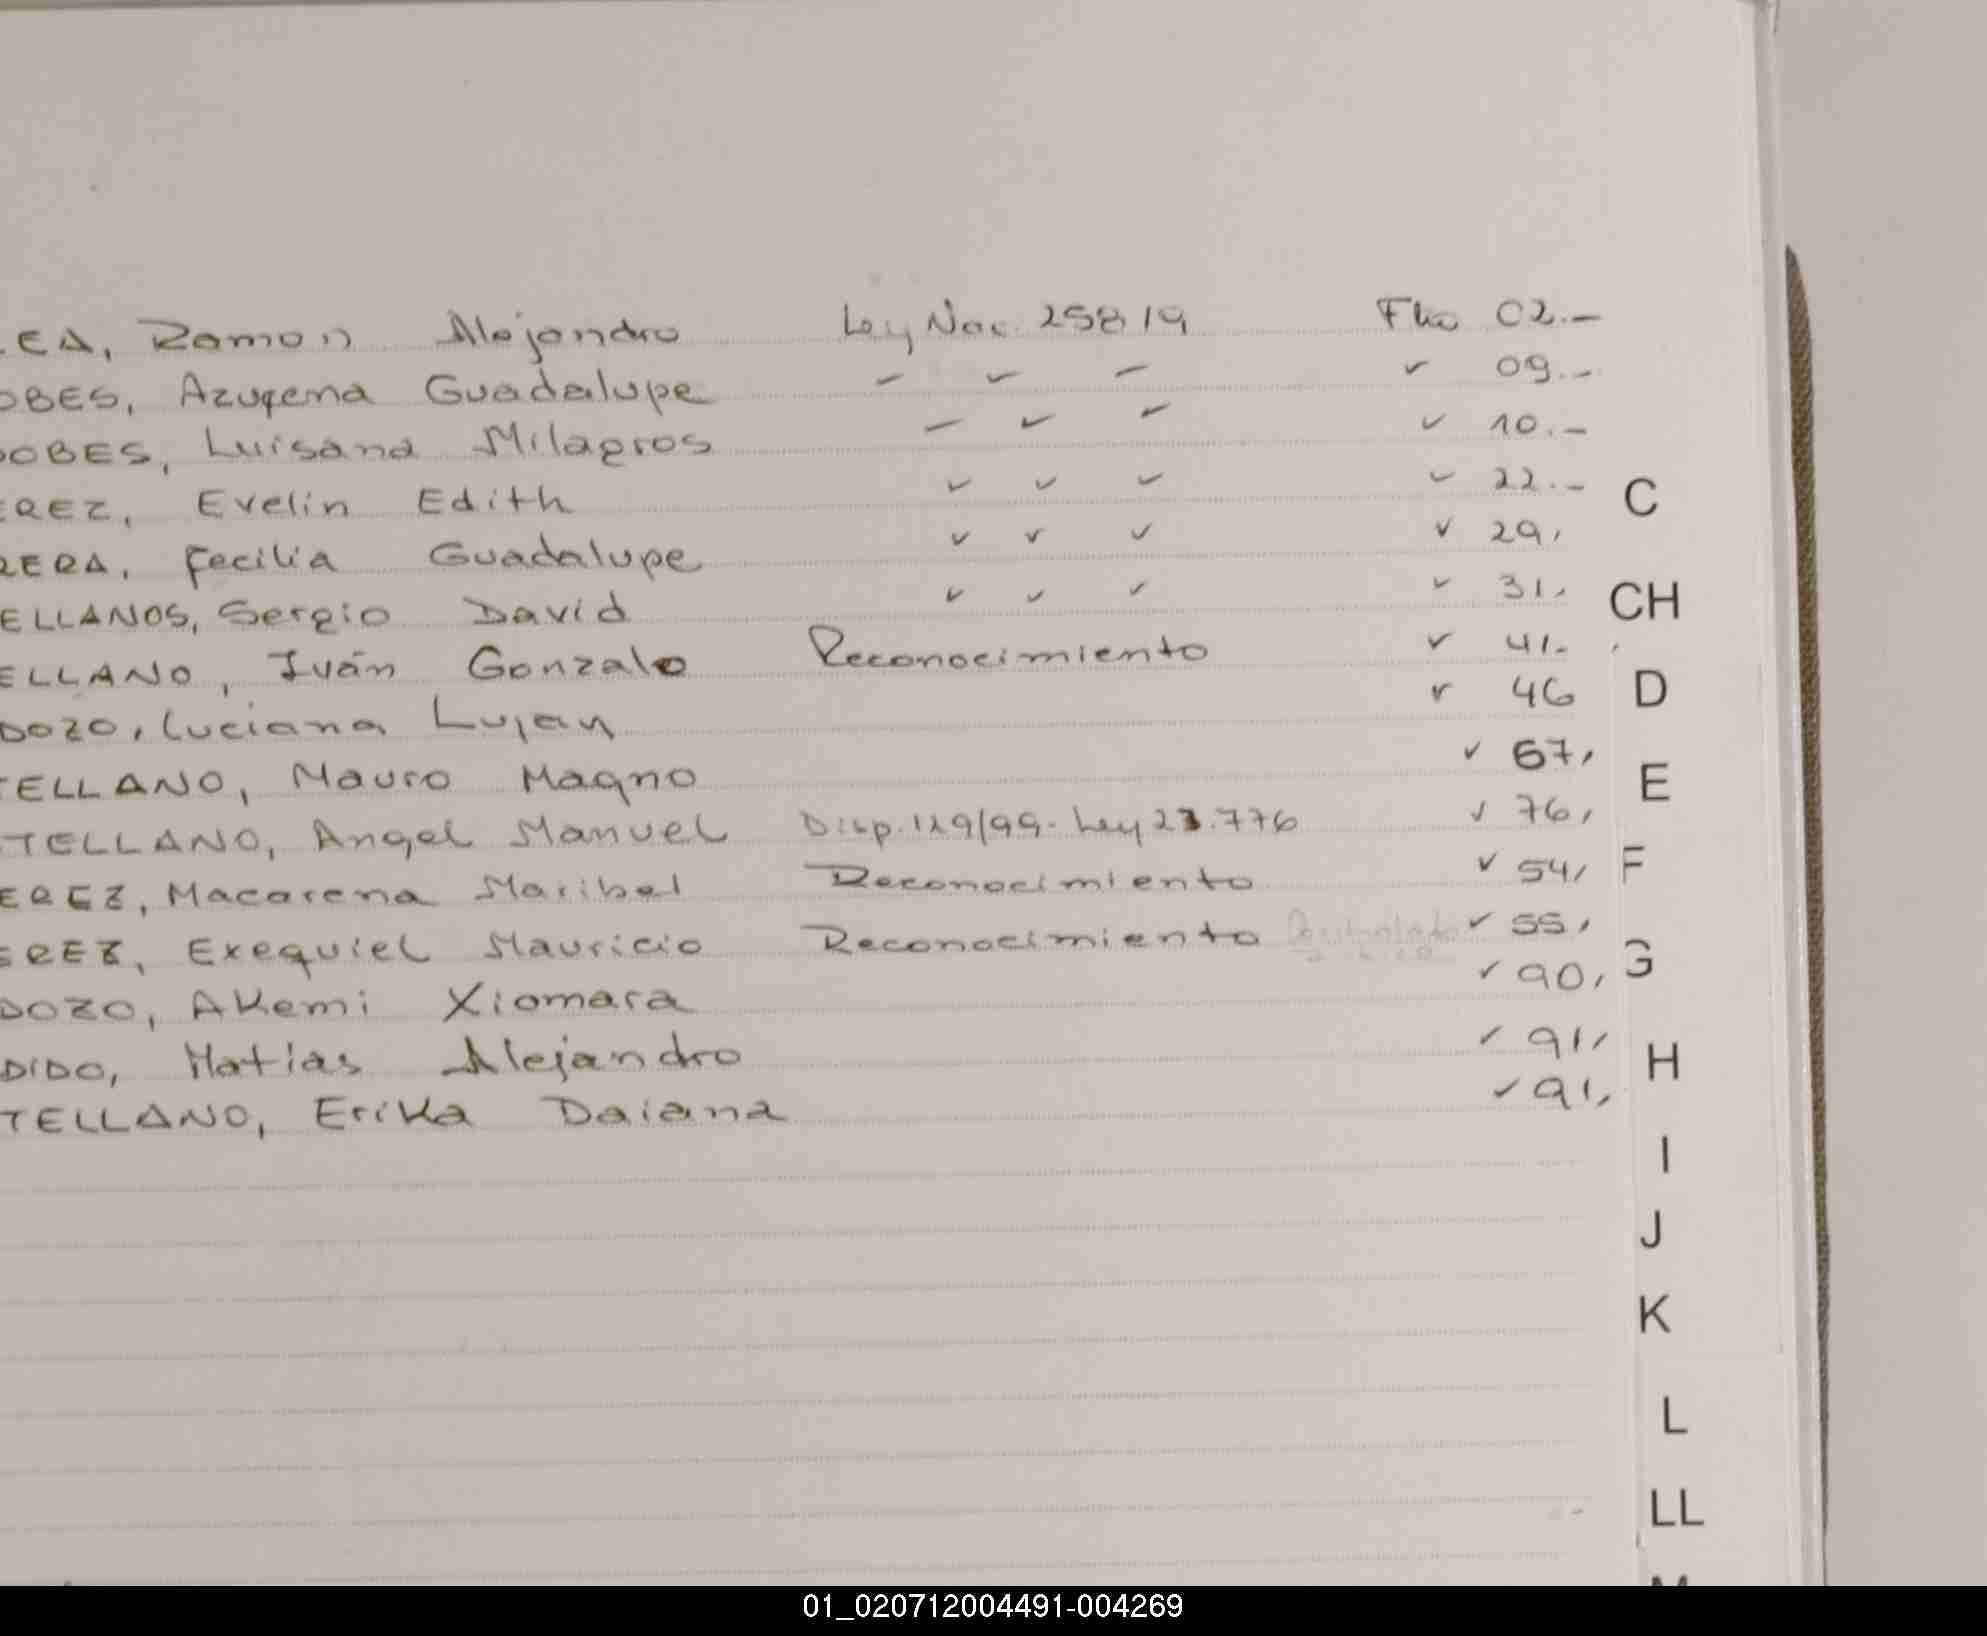 LEA, Ramon Alejandro Ley Nac. 25819 Flio 02.-
OBES, Azucena Guadalupe 09.-
DOBES, Luisana Milagros 10.-
EREZ, Evelin Edith 22.-
RERA, Cecilia Guadalupe 29,
ELLANOS, Sergio David 31,
ELLANO, Iván Gonzalo Reconocimiento 41.
DOZO, Luciana Lujan 46
TELLANO, Mauro Magno 67,
TELLANO, Angel Manuel Disp. 129/99- Ley 23.776 76,
EREZ, Macarena Maribel Reconocimiento 54,
EREZ, Exequiel Mauricio Reconocimiento 55,
DOZO, Akemi Xiomara 90,
DIDO, Matias Alejandro 91,
TELLANO, Erika Daiana 91,
C
CH
D
E
F
G
H
I
J
K
L
LL
M
01_020712004491-004269